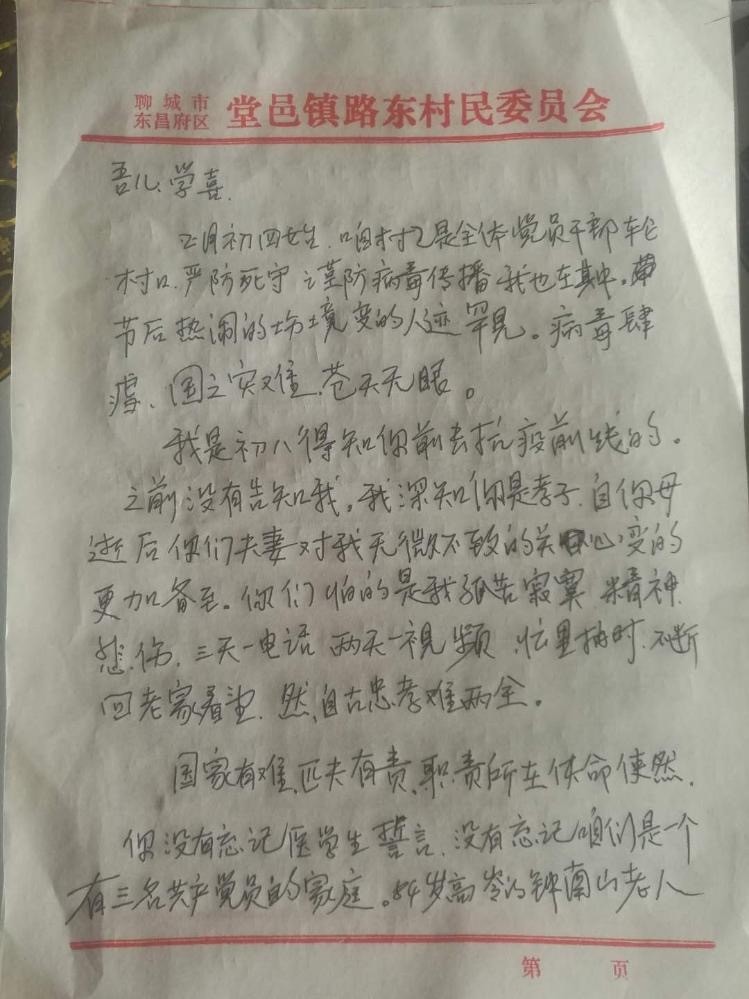 聊城市
东昌府区
堂邑镇路东村民委员会
吾儿、学喜.
正月初四开始.咱村又是全体党员干部轮
村口.严防死守 谨防病毒传播 我也在其中。
节后热闹的场境变的人迹罕见。病毒肆
虐、国之灾难.苍天无眼。
我是初八得知你前去抗疫前线的。
之前没有告知我。我深知你是孝子.自你母
逝后你们夫妻对我无微不致的关心变的
更加备至。你们怕的是我孤苦寂寞.精神
悲伤.三天一电话 两天一视频.忙里抽时.不断
回老家看望.然.自古忠孝难两全。
国家有难.匹夫有责.职责所在使命使然.
你没有忘记医学生誓言.没有忘记咱们是一个
有三名共产党员的家庭。84岁高岺的钟南山老人
第 页